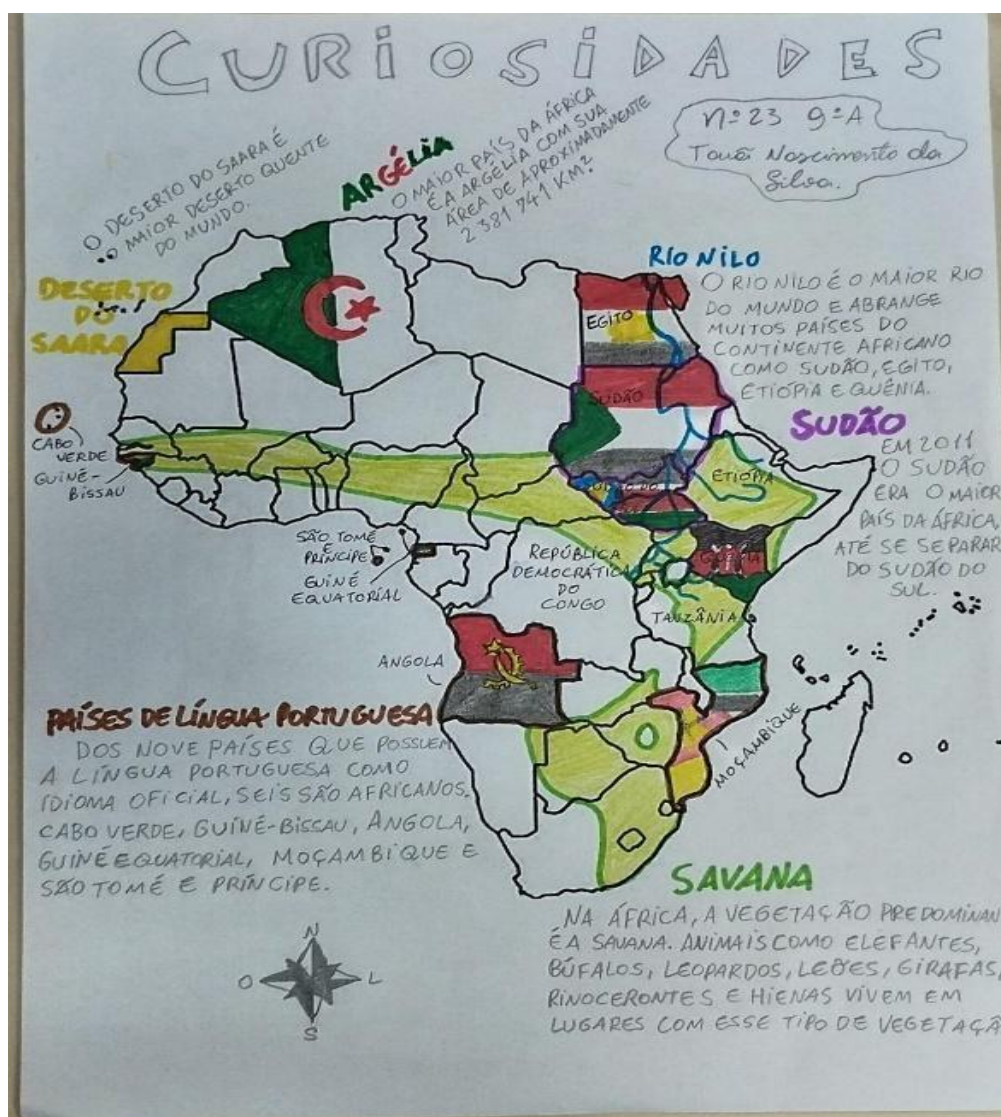 CURIOSIDADES
Nº 23 9ºA
Nascimento da
Silva.
O DESERTO DO SAARA É
O MAIOR DESERTO QUENTE
DO MUNDO.
ARGÉLIA
O MAIOR PAÍS DA ÁFRICA
É A ARGÉLIA COM SUA
ÁREA DE APROXIMADAMENTE
2 381 741 KM²
DESERTO
DO
SAARA
RIO NILO
O RIO NILO É O MAIOR RIO
DO MUNDO E ABRANGE
MUITOS PAÍSES DO
CONTINENTE AFRICANO
COMO SUDÃO, EGITO,
ETIÓPIA E QUÊNIA.
EGITO
SUDÃO
SUDÃO
EM 2011
O SUDÃO
ERA O MAIOR
PAÍS DA ÁFRICA,
ATÉ SE SEPARAR
DO SUDÃO DO
SUL.
CABO
VERDE
GUINÉ-
BISSAU
ETIÓPIA
SÃO TOMÉ
E
PRÍNCIPE
GUINÉ
EQUATORIAL
REPÚBLICA
DEMOCRÁTICA
DO
CONGO
TANZÂNIA
ANGOLA
MOÇAMBIQUE
PAÍSES DE LÍNGUA PORTUGUESA
DOS NOVE PAÍSES QUE POSSUEM
A LÍNGUA PORTUGUESA COMO
IDIOMA OFICIAL, SEIS SÃO AFRICANOS.
CABO VERDE, GUINÉ-BISSAU, ANGOLA,
GUINÉ EQUATORIAL, MOÇAMBIQUE E
SÃO TOMÉ E PRÍNCIPE.
SAVANA
NA ÁFRICA, A VEGETAÇÃO PREDOMINAN
É A SAVANA. ANIMAIS COMO ELEFANTES,
BÚFALOS, LEOPARDOS, LEÕES, GIRAFAS,
RINOCERONTES E HIENAS VIVEM EM
LUGARES COM ESSE TIPO DE VEGETAÇÃ
N
O L
S